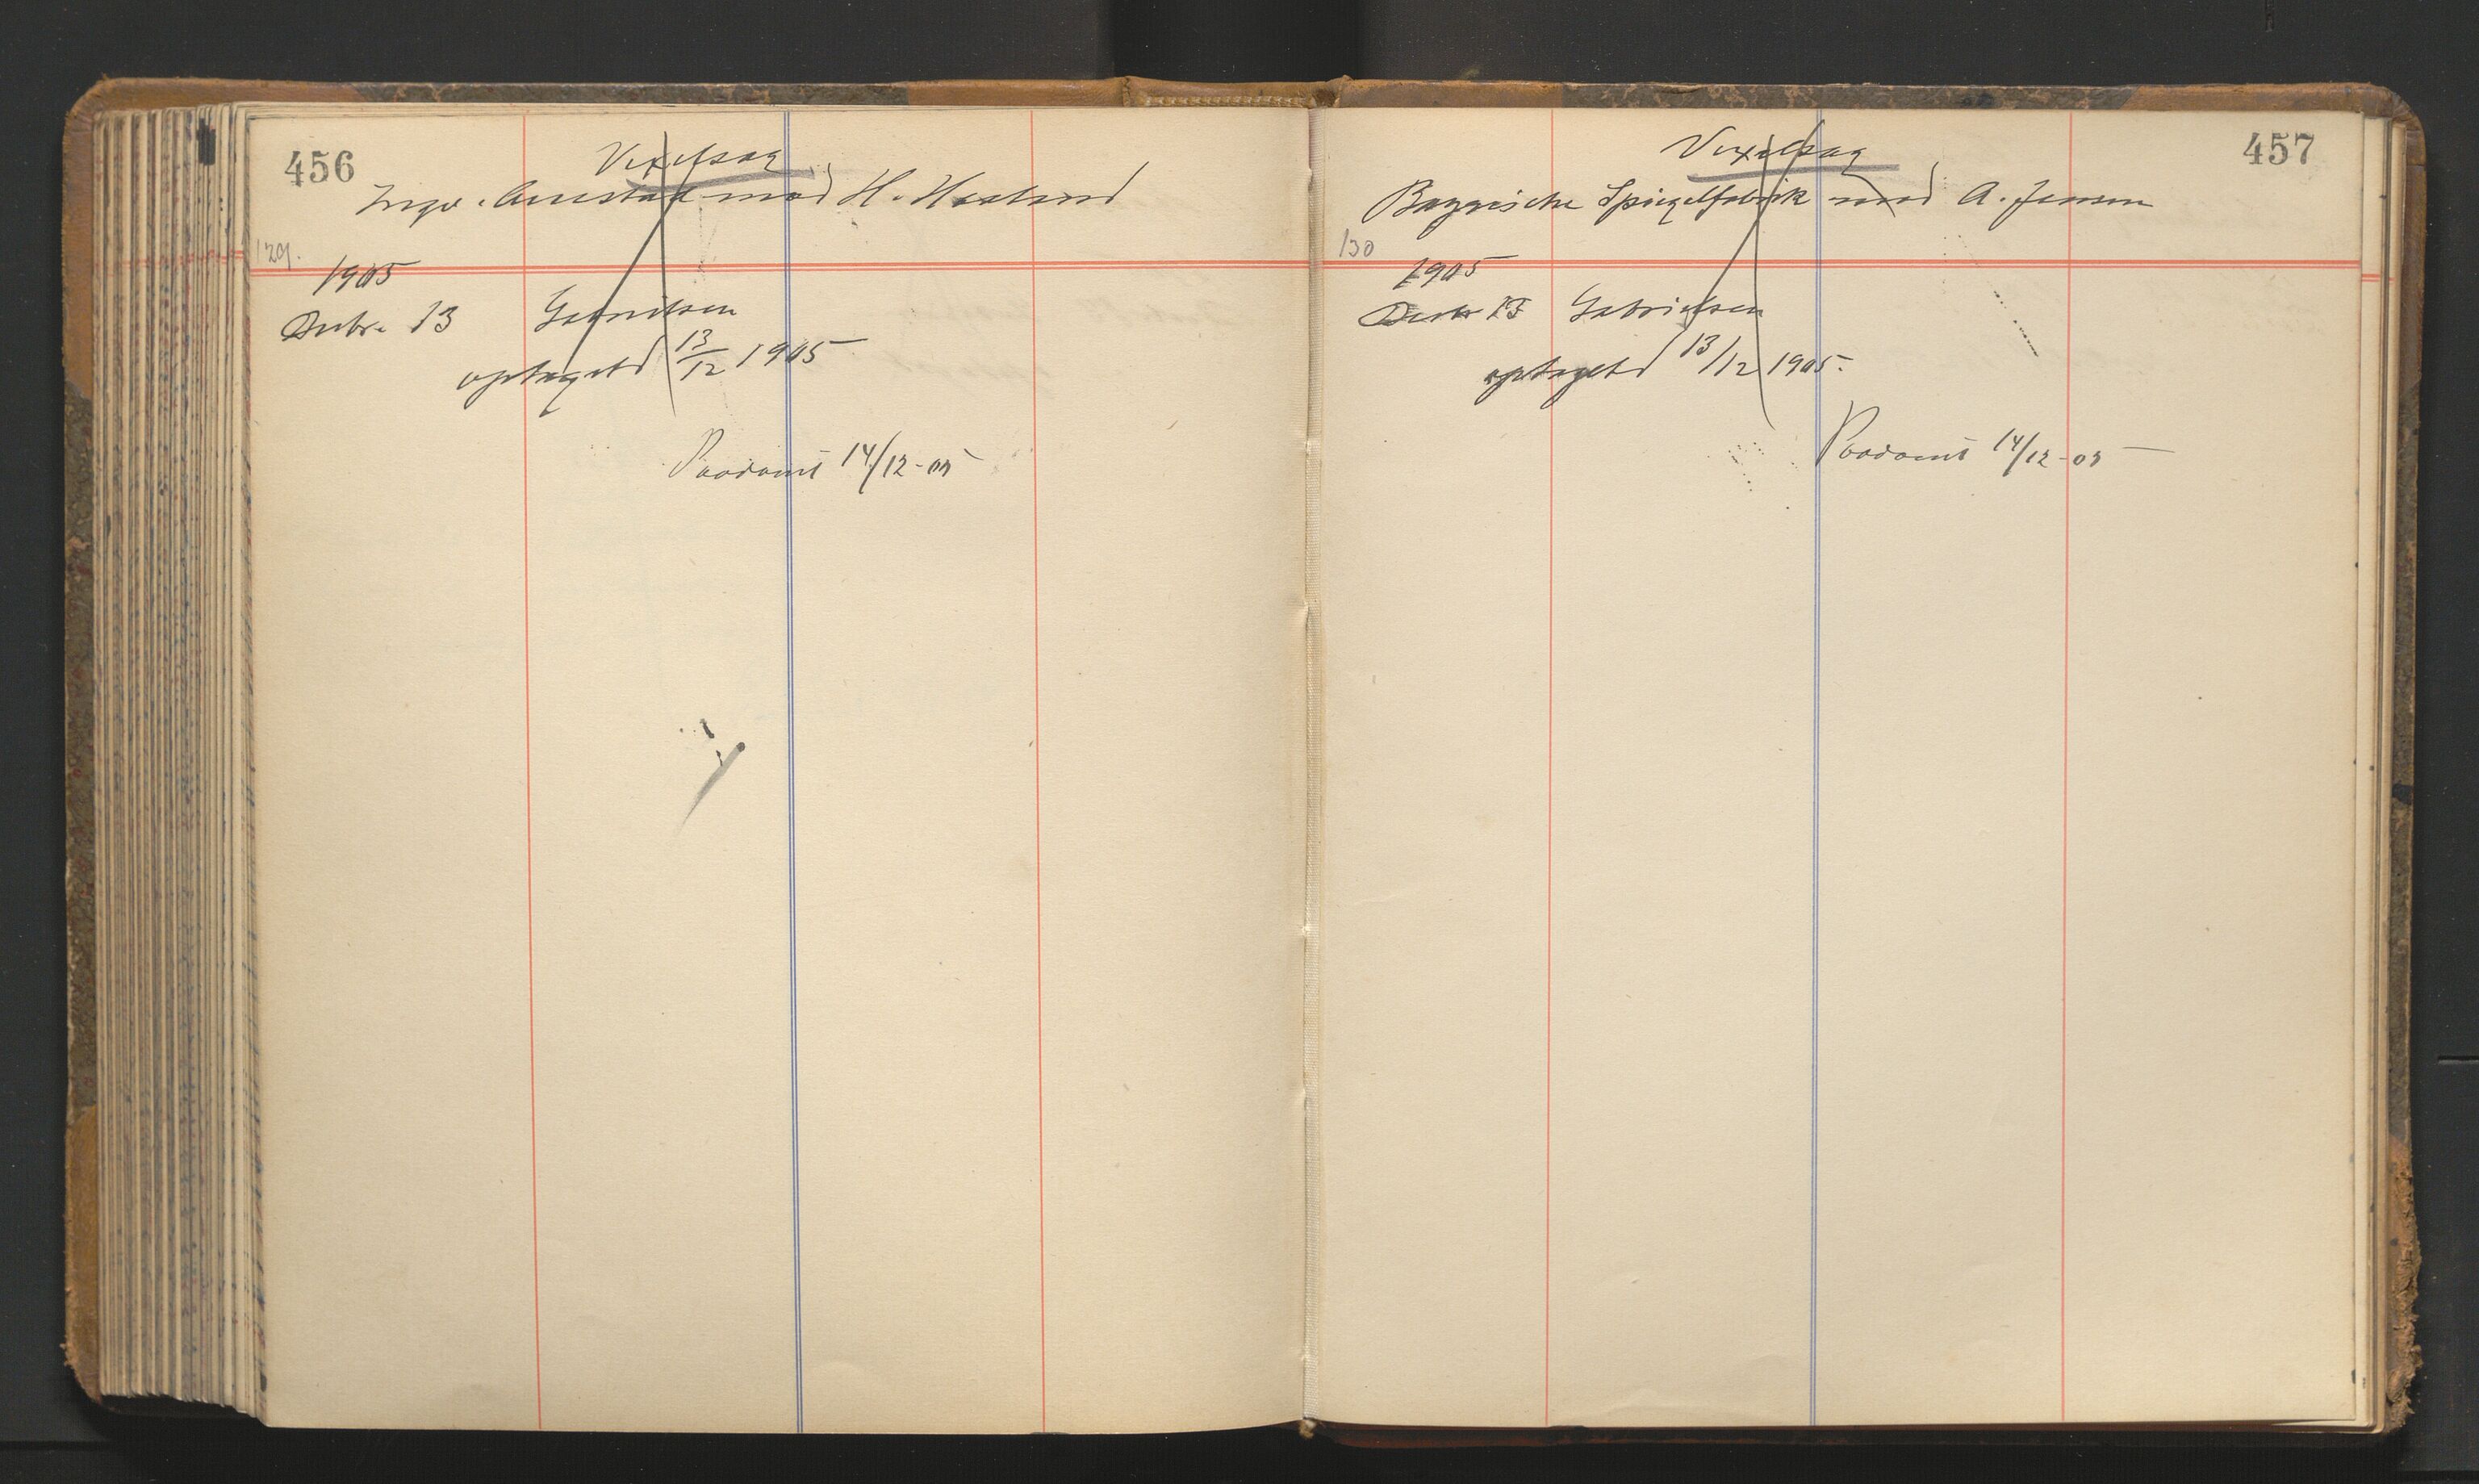 456
Vexelsag
Ingv. Aarrestad mod H. Haaland
129.
1905
Decbr. 13 Gabrielsen
optaget d 13/12 1905
Paadømt 14/12-05
457
Vexelsag
Bayrische Spiegelfabrik mod A. Jensen
130
1905
Decbr 13 Gabrielsen
optaget d 13/12 1905.
Paadømt 14/12-05